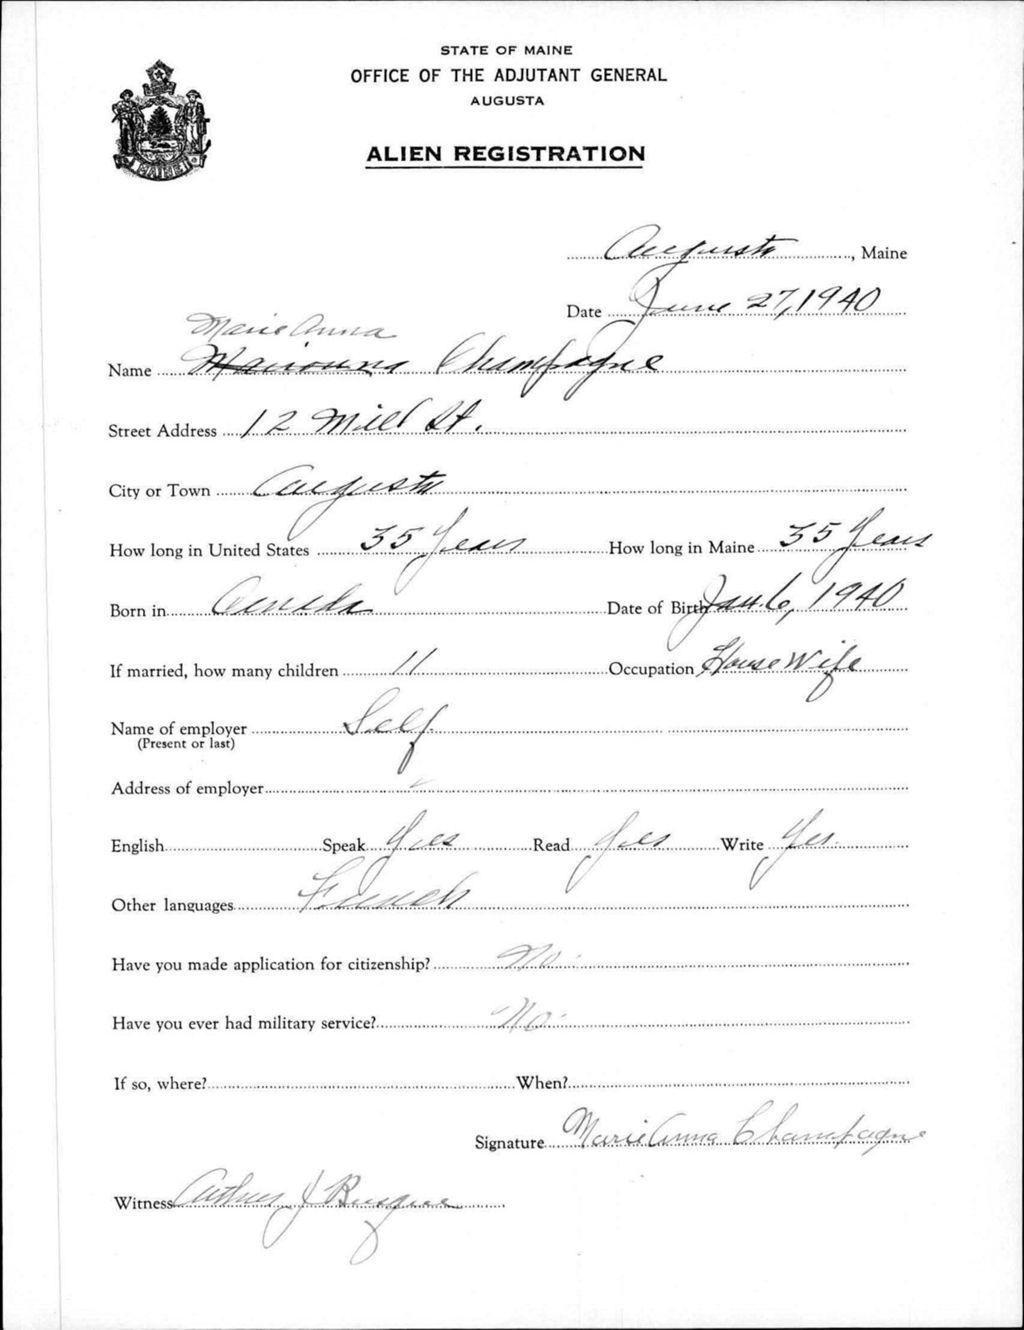 STATE OF MAINE
OFFICE OF THE ADJUTANT GENERAL
AUGUSTA
MAINE
ALIEN REGISTRATION
Augusta, Maine
Date June 27, 1940
Marie Anna
Name Champagne
Street Address 12 Mill St.
City or Town Augusta
How long in United States 35 Years How long in Maine 35 Years
Born in Canada Date of Birth Jan. 6, 1940
If married, how many children 11 Occupation House Wife
Name of employer Self
(Present or last)
Address of employer
English Speak Yes Read Yes Write Yes.
Other languages French
Have you made application for citizenship? No.
Have you ever had military service? No.
If so, where? When?
Signature Marie Anna Champagne
Witness Arthur J